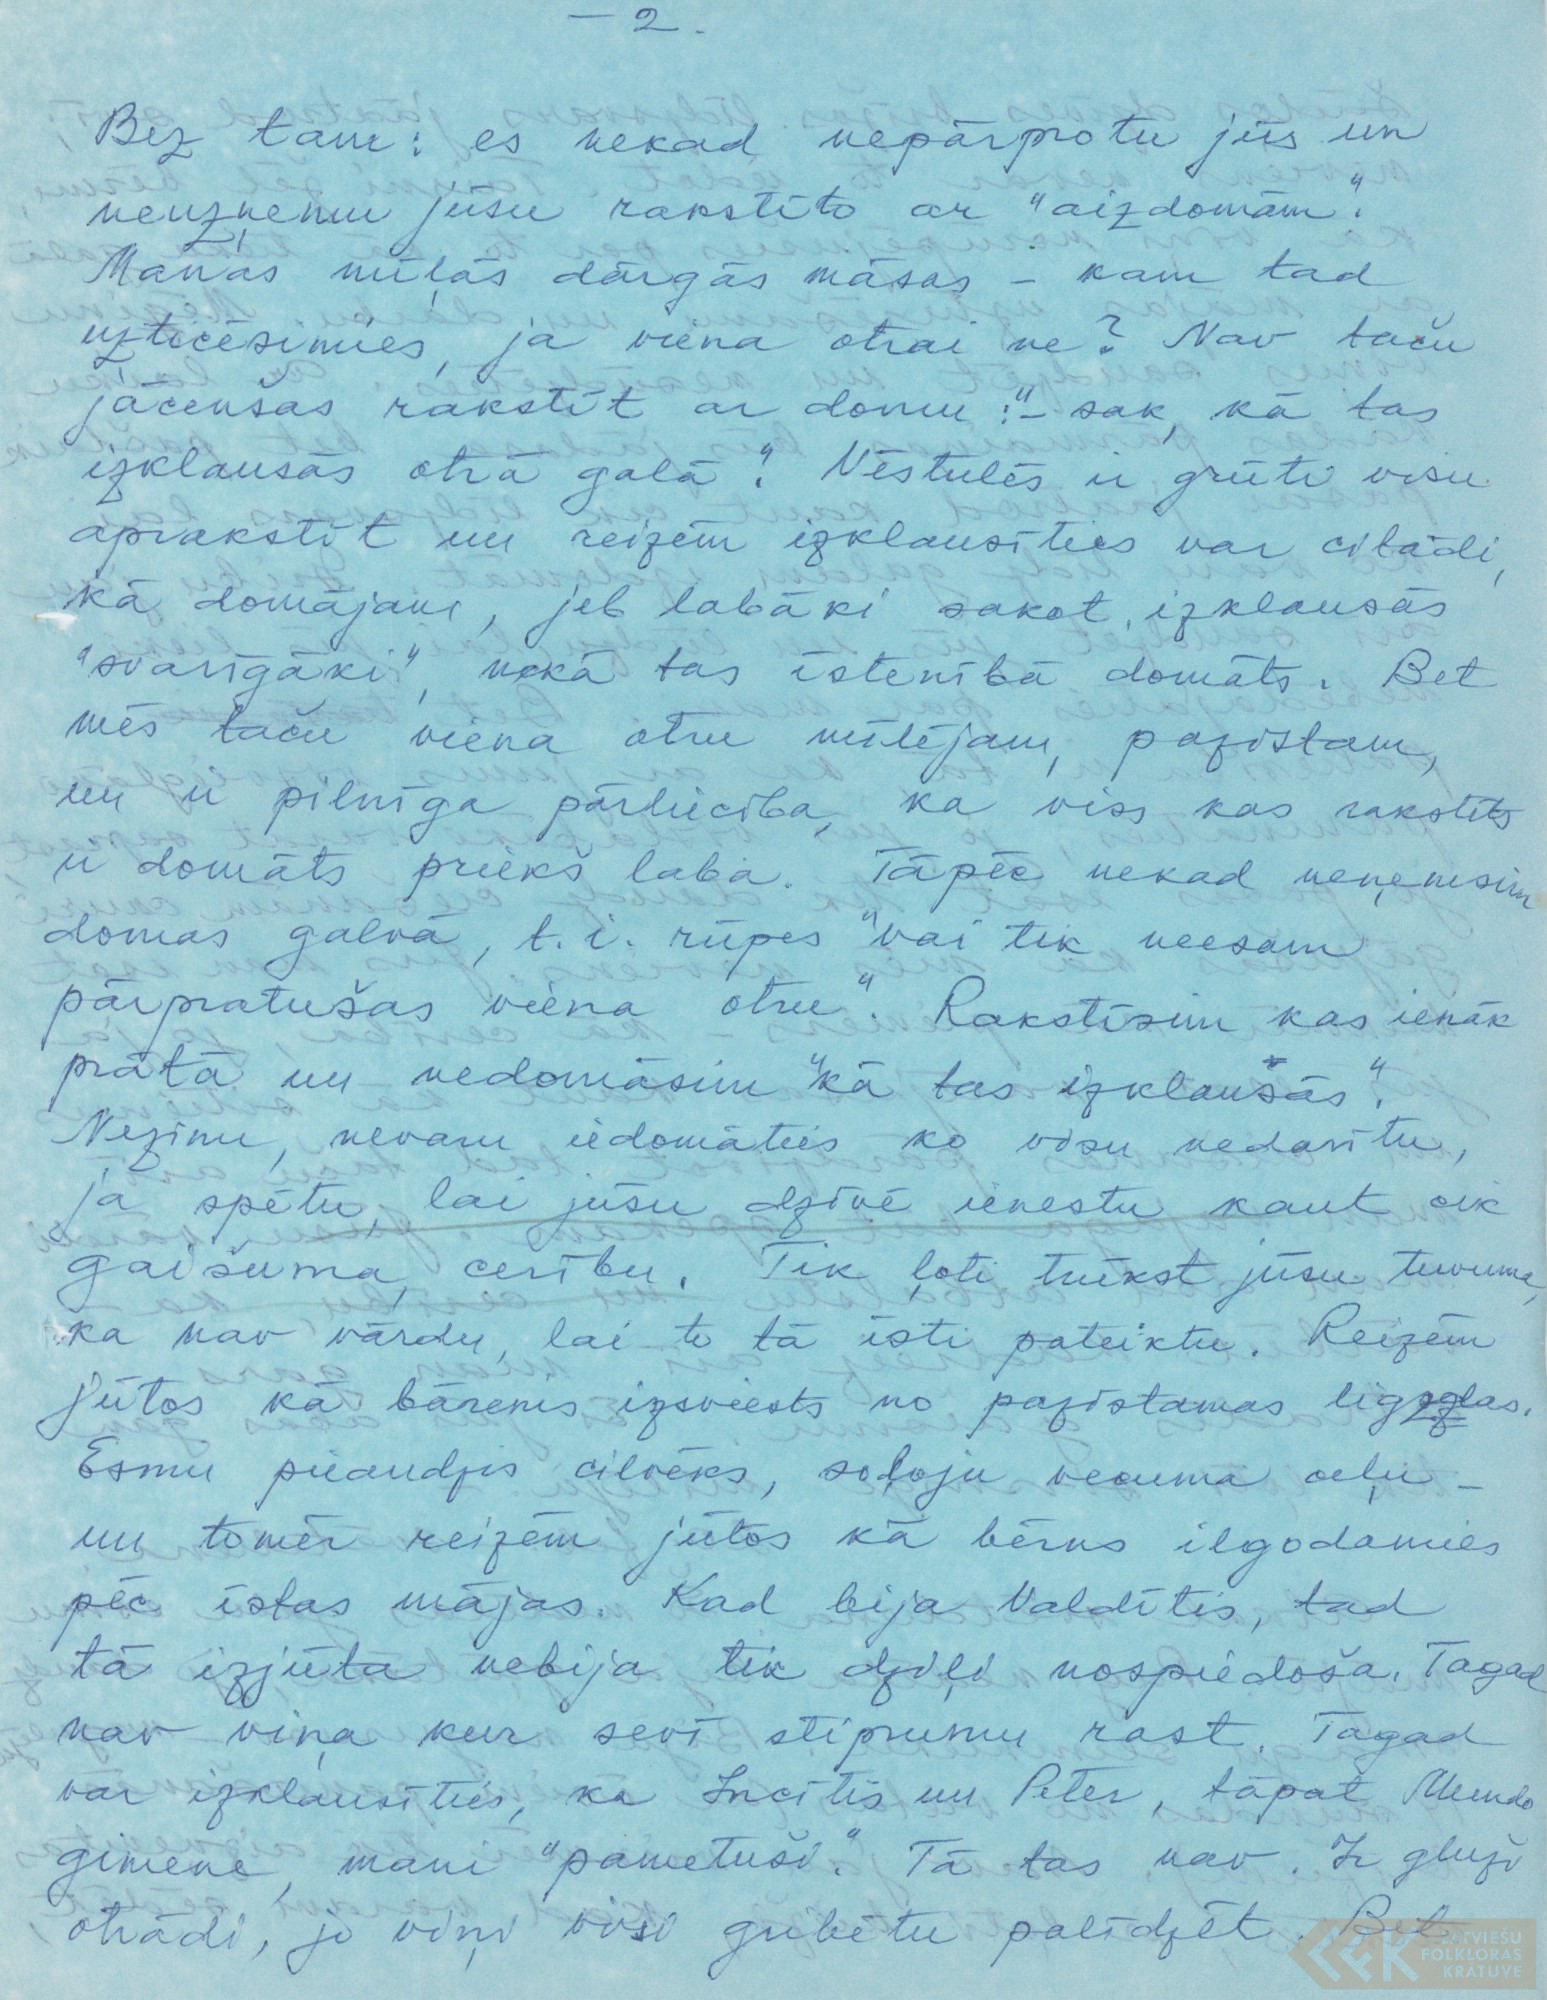 — 2.
Bez tam: es nekad nepārprotu jūs un
neuzņemu jūsu rakstīto ar "aizdomām".
Manas mīļās dārgās māsas – kam tad
uzticēsimies, ja viena otrai ne? Nav taču
jācenšas rakstīt ar domu: "– sak, kā tas
izklausās otrā galā". Vēstulēs ir grūti visu
aprakstīt un reizēm izklausīties var citādi,
kā domājam, jeb labāki sakot, izklausās
"svarīgāki", nekā tas īstenībā domāts. Bet
mēs taču viena otru mīlējam, pazīstam,
un ir pilnīga pārliecība, ka viss kas rakstīts
ir domāts priekš laba. Tāpēc nekad neņemsim
domas galvā, t.i. rūpes "vai tik neesam
pārpratušas viena otru". Rakstīsim kas ienāk
prātā un nedomāsim "kā tas izklausās".
Nezinu, nevaru iedomāties ko visu nedarītu,
ja spētu, lai jūsu dzīvē ienestu kaut cik
gaišuma, cerību. Tik ļoti trūkst jūsu tuvuma,
ka nav vārdu, lai to tā īsti pateiktu. Reizēm
jūtos kā bārenis izsviests no pazīstamas ligzdas.
Esmu pieaudzis cilvēks, soļoju vecuma ceļu –
un tomēr reizēm jūtos kā bērns ilgodamies
pēc īstas mājas. Kad bija Valdītis, tad
tā izjūta nebija tik dziļi nospiedoša. Tagad
nav viņa kur sevī stiprumu rast. Tagad
var izklausīties, ka Incītis un Pēter, tāpat Mundo
ģimene, mani "pametuši". Tā tas nav. Ir gluži
otrādi, jo viņi visi gribētu palīdzēt. Bet
LATVIEŠU
FOLKLORAS
KRĀTUVE